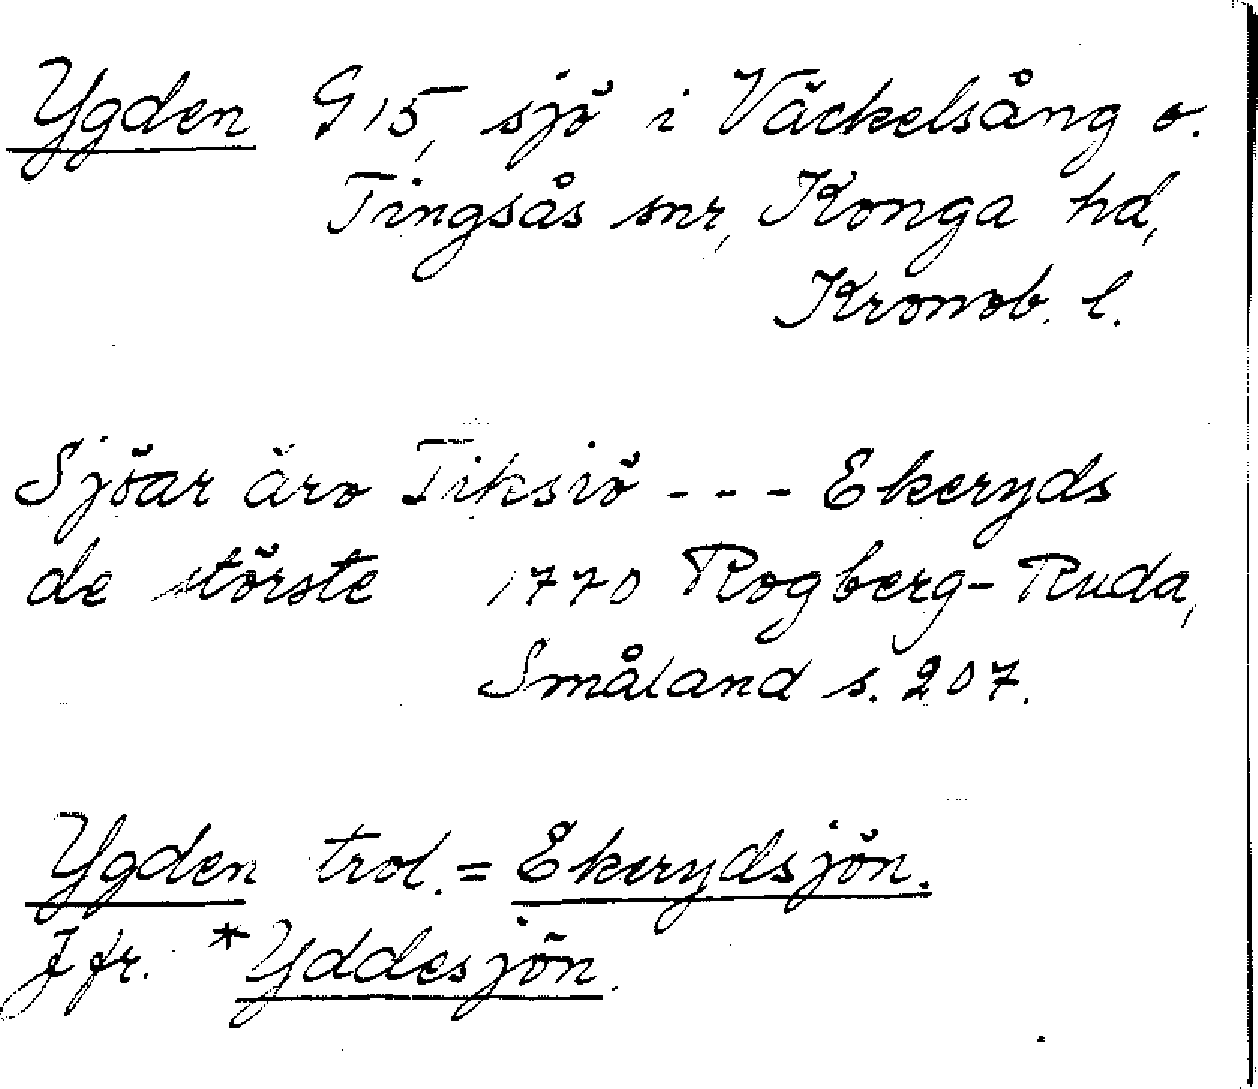 Ygden G 15, sjö i Väckelsång o.
Tingsås snr, Konga hd,
Kronob. l.
Sjöar äro Tiksiö - - - Ekeryds
de störste 1770 Rogberg-Ruda,
Småland s. 207.
Ygden trol. = Ekerydsjön.
Jfr. *Yddesjön.